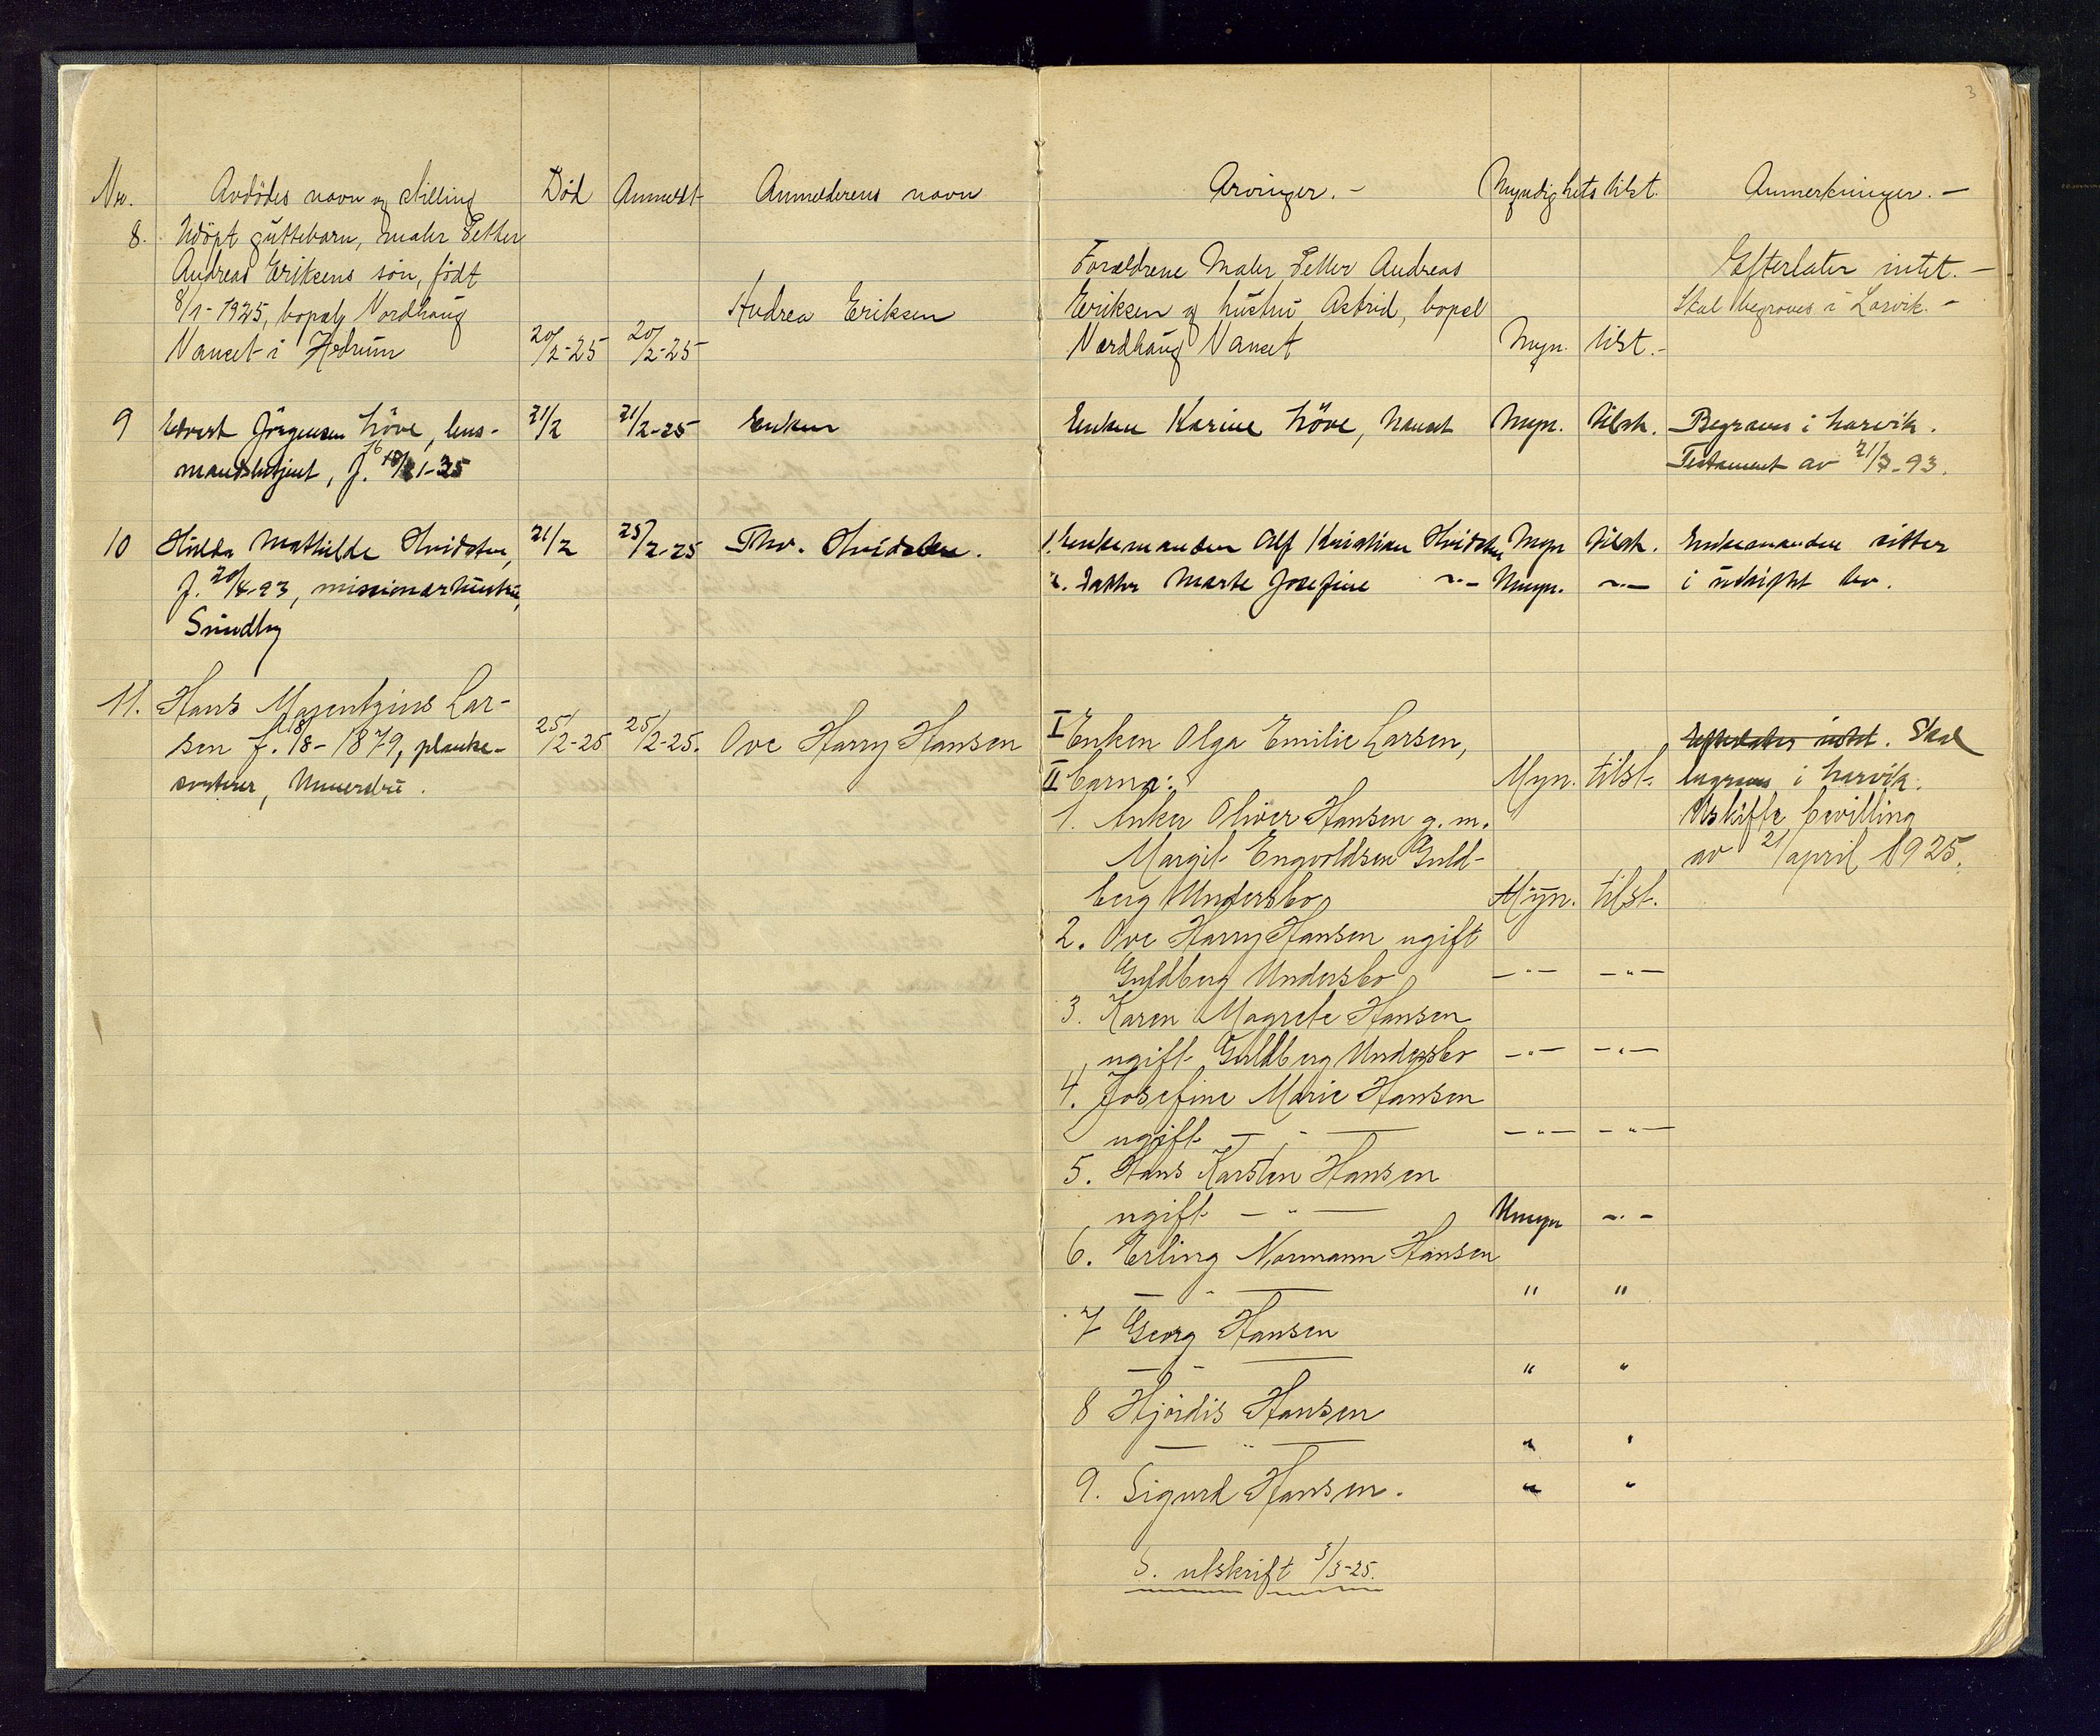 3
No. Avdödes navn og stilling Död Anmeldt Anmelderens navn
8. Udöpt guttebarn, maler Petter
Andreas Eriksens sön, født
8/1-1925, bopæl Nordhaug
Nanset i Hedrum 20/2-25 20/2-25 Andrea Eriksen
9 Jörgensen Höve, lens-
mandsbetjent, f. 
21/2 21/2-25 Enken
10 Hilda Mathilde Hvidsten,
f. 20/4-93, missionærhustru,
Sundby
21/2 25/2-25 Thv. Hvidsten.
11. Hans Larentzius Lar-
sen f. 18/8-1879, planke-
sorterer, 
25/2-25 25/2-25. Ove Harry Hansen
Arvinger.- Myndighets tilst. Anmerkninger.-
Forældrene Maler Petter Andreas
Eriksen og hustru Astrid, bopæl
Nordhaug Nanset Myn. tilst.-
Efterlater intet.-
Skal begraves i Larvik.-
Enken Karine Höve, Nanset Myn. tilst. Begraves i Larvik.
Testament av 21/7-93.
1. Enkemanden Alf Kristian Hvidsten Myn tilst. Enkemanden sitter
2. Datter Marte Josefine -"- Umyn. -"- i uskiftet bo.
I Enken Olga Emilie Larsen,
II barna: Myn. tilst.
Efterlater intet. Skal
begraves i Larvik.
Uskifte bevilling
av 21/april 1925.
1. Anker Oliver Hansen g.m.
Margit Engvoldsen Guld-
berg Undersbo Myn. tilst.
2. Ove Harry Hansen ugift
Guldberg Undersbo -"- -"-
3. Karen Magrete Hansen
ugift Guldberg Undersbo -"- -"-
4. Josefine Marie Hansen
ugift - " - -"- -"-
5. Hans Karsten Hansen
ugift - " - Umyn -"-
6. Erling Normann Hansen
- " - " "
7 Georg Hansen
- " - " "
8 Hjördis Hansen
- " - " "
9. Sigurd Hansen. " "
S. utskrift 3/3-25.